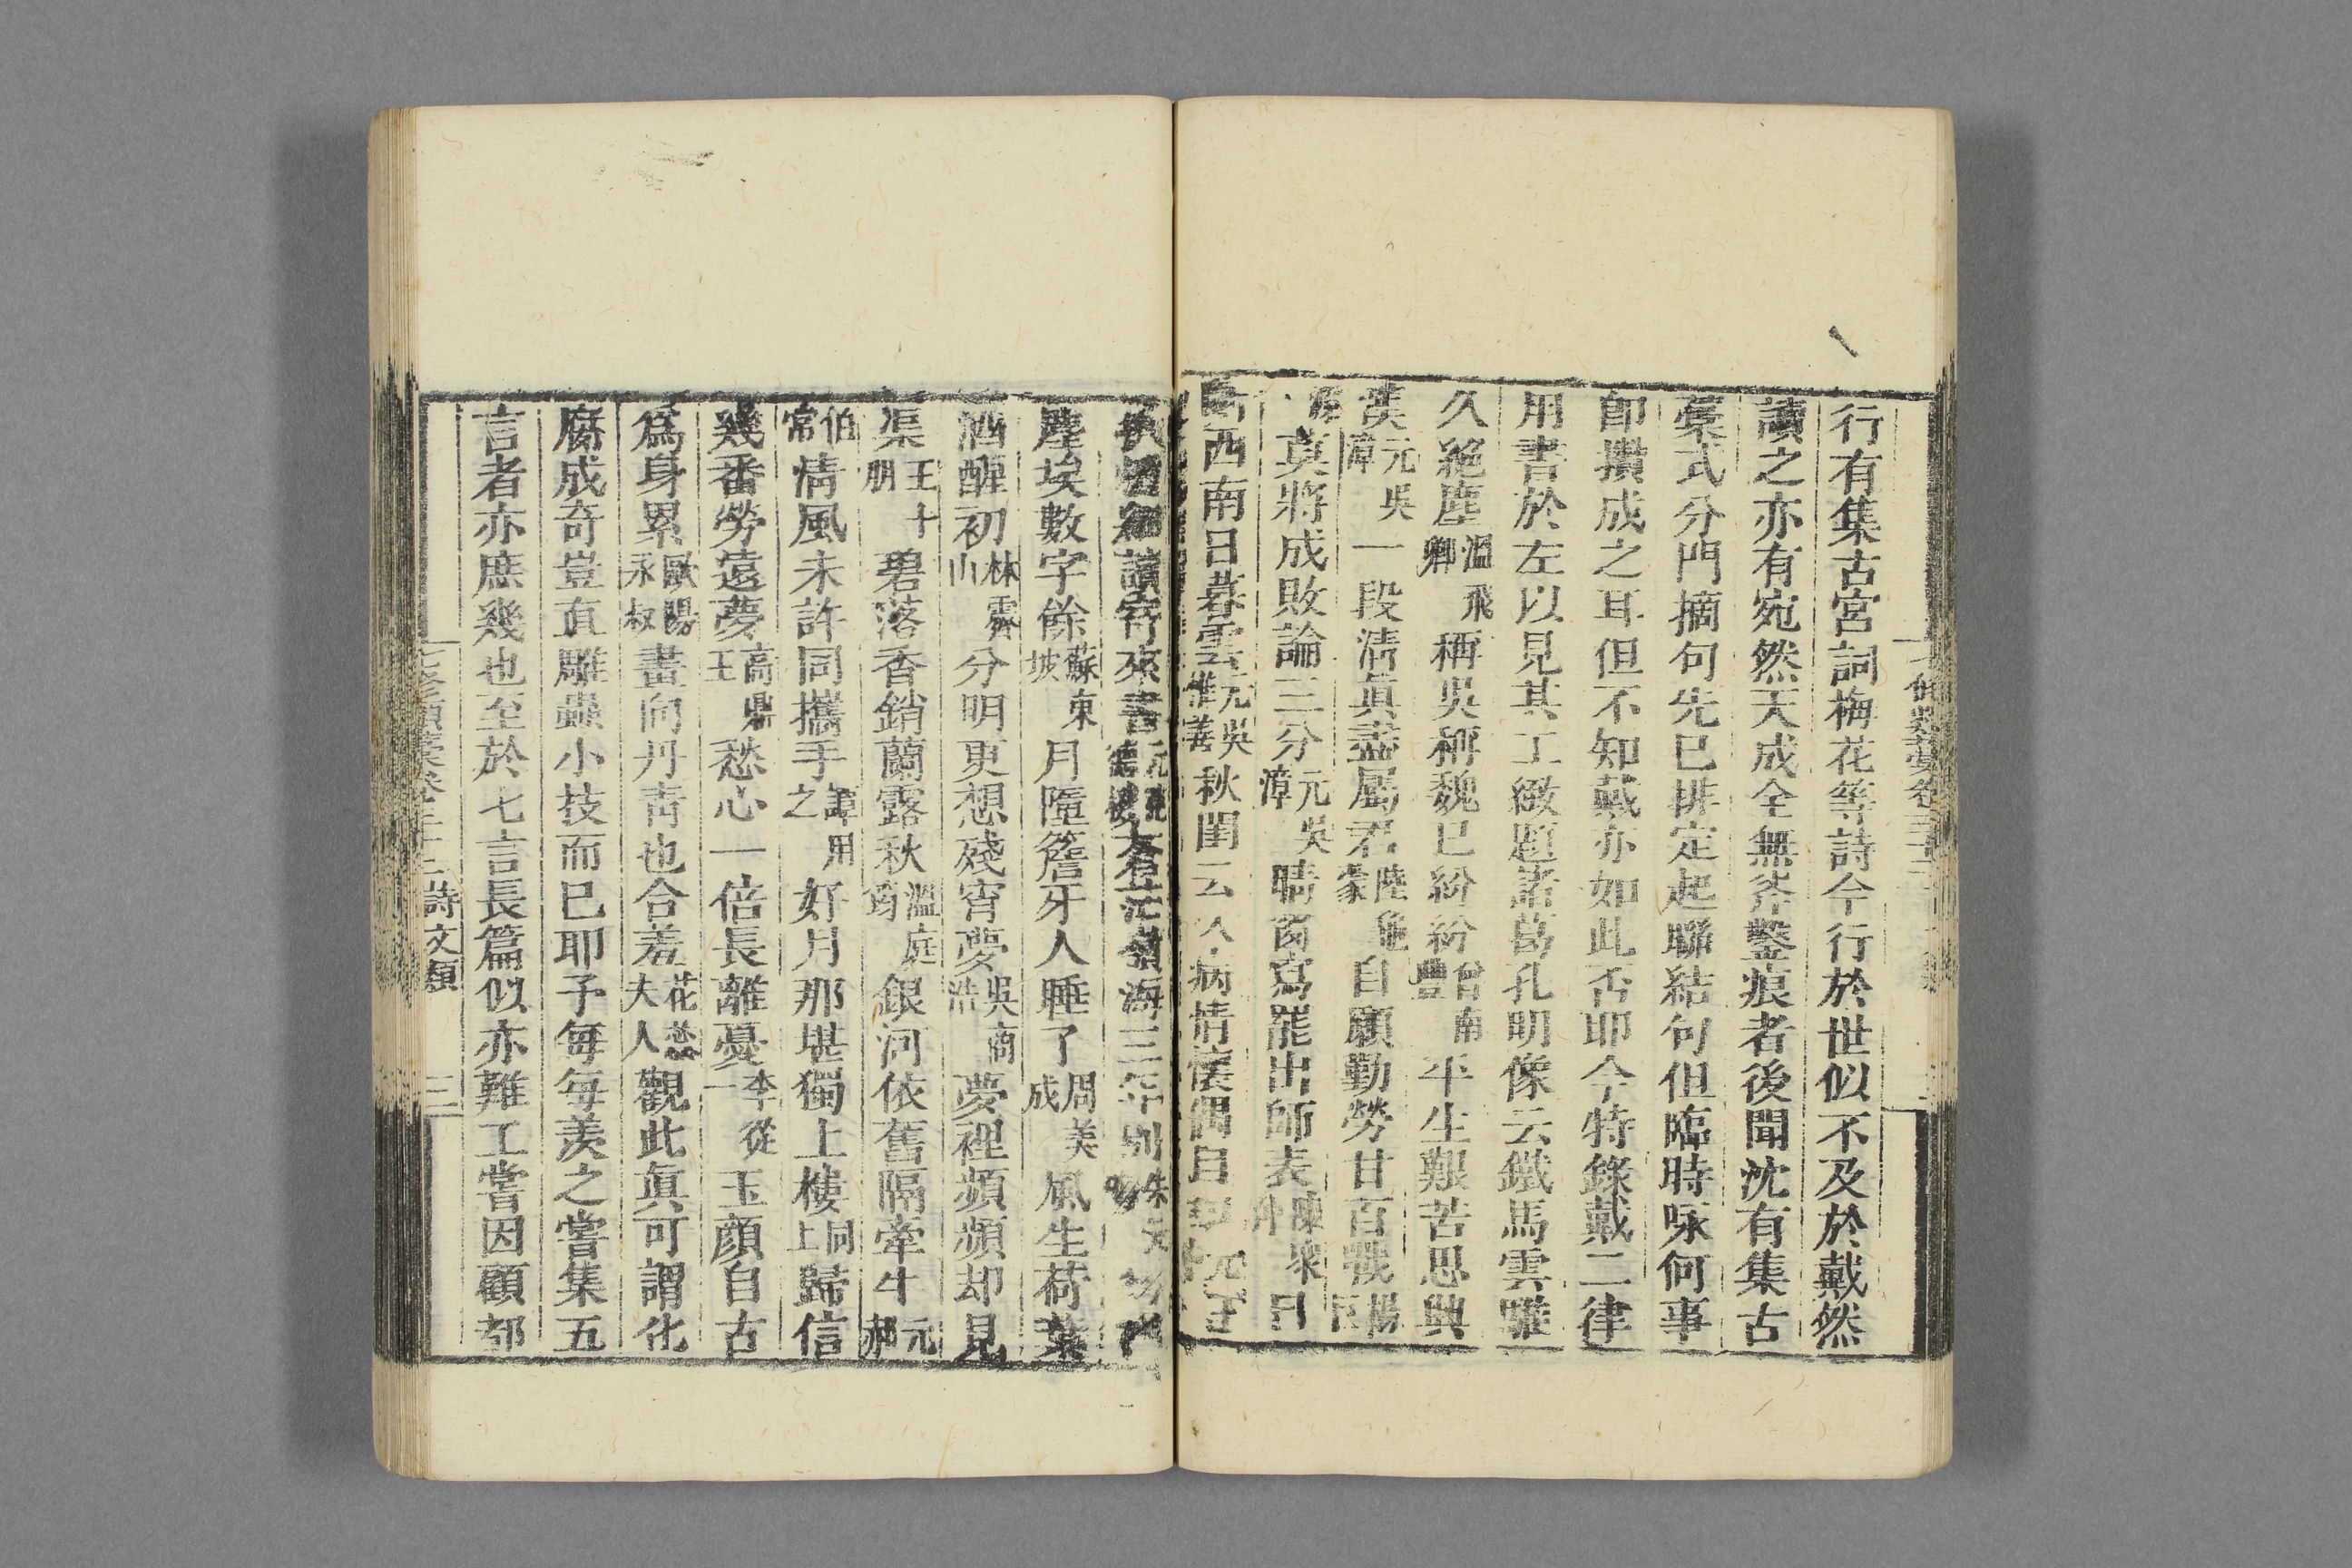 行有集古宮詞梅花等詩今行於世似不及於戴然
讀之亦有宛然天成全無斧鑿痕者後聞沈有集古
稾式分門摘句先已排定起聯結句但臨時咏何事
卽攢成之耳但不知戴亦如此否耶今特錄戴二律
用書於左以見其工緻題諸葛孔明像云鐵馬雲雕
久絕塵溫飛卿稱吳稱魏已紛紛曾南豐平生艱苦思興
漢元吳漳一段淸眞盡屬君陸龜蒙自願勤勞甘百戰楊
莫將成敗論三分元吳漳晴窗寫罷出師表陳衆
西南日暮雲元吳秋閨云人病情懷偶自
細讀寄來書蒼茫嶺海三年別朱
塵埃數字餘蘇東坡月墮簷牙人睡了周美成風生荷葉
酒醒初林霽山分明更想殘宵夢吳商浩夢裡頻頻却見
渠王十朋碧落香銷蘭露秋溫庭筠銀河依舊隔牽牛元郝
伯常淸風未許同攜手譚用之好月那堪獨上樓同上歸信
幾番勞遠夢高鼎玉愁心一倍長離憂李從一玉顏自古
爲身累歐陽永叔畫向丹靑也合羞花蕊夫人觀此眞可謂化
腐成奇豈直雕蟲小技而已耶予每每羨之嘗集五
言者亦庶幾也至於七言長篇似亦難工嘗因顧都
詩文類
三